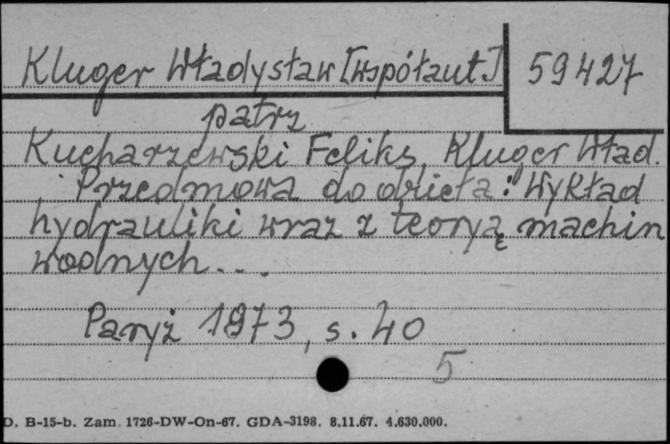 Kluger Władysław [współaut.] 59427
patrz
Kucharzewski Feliks, Kluger Wład.
Przedmowa do dzieła: Wykład
hydrauliki wraz z teoryą machin
wodnych...
Paryż 1873, s. 40
5
D. B-15-b. Zam. 1726-DW-On-67. GDA-3198. 8.11.67. 4.630.000.